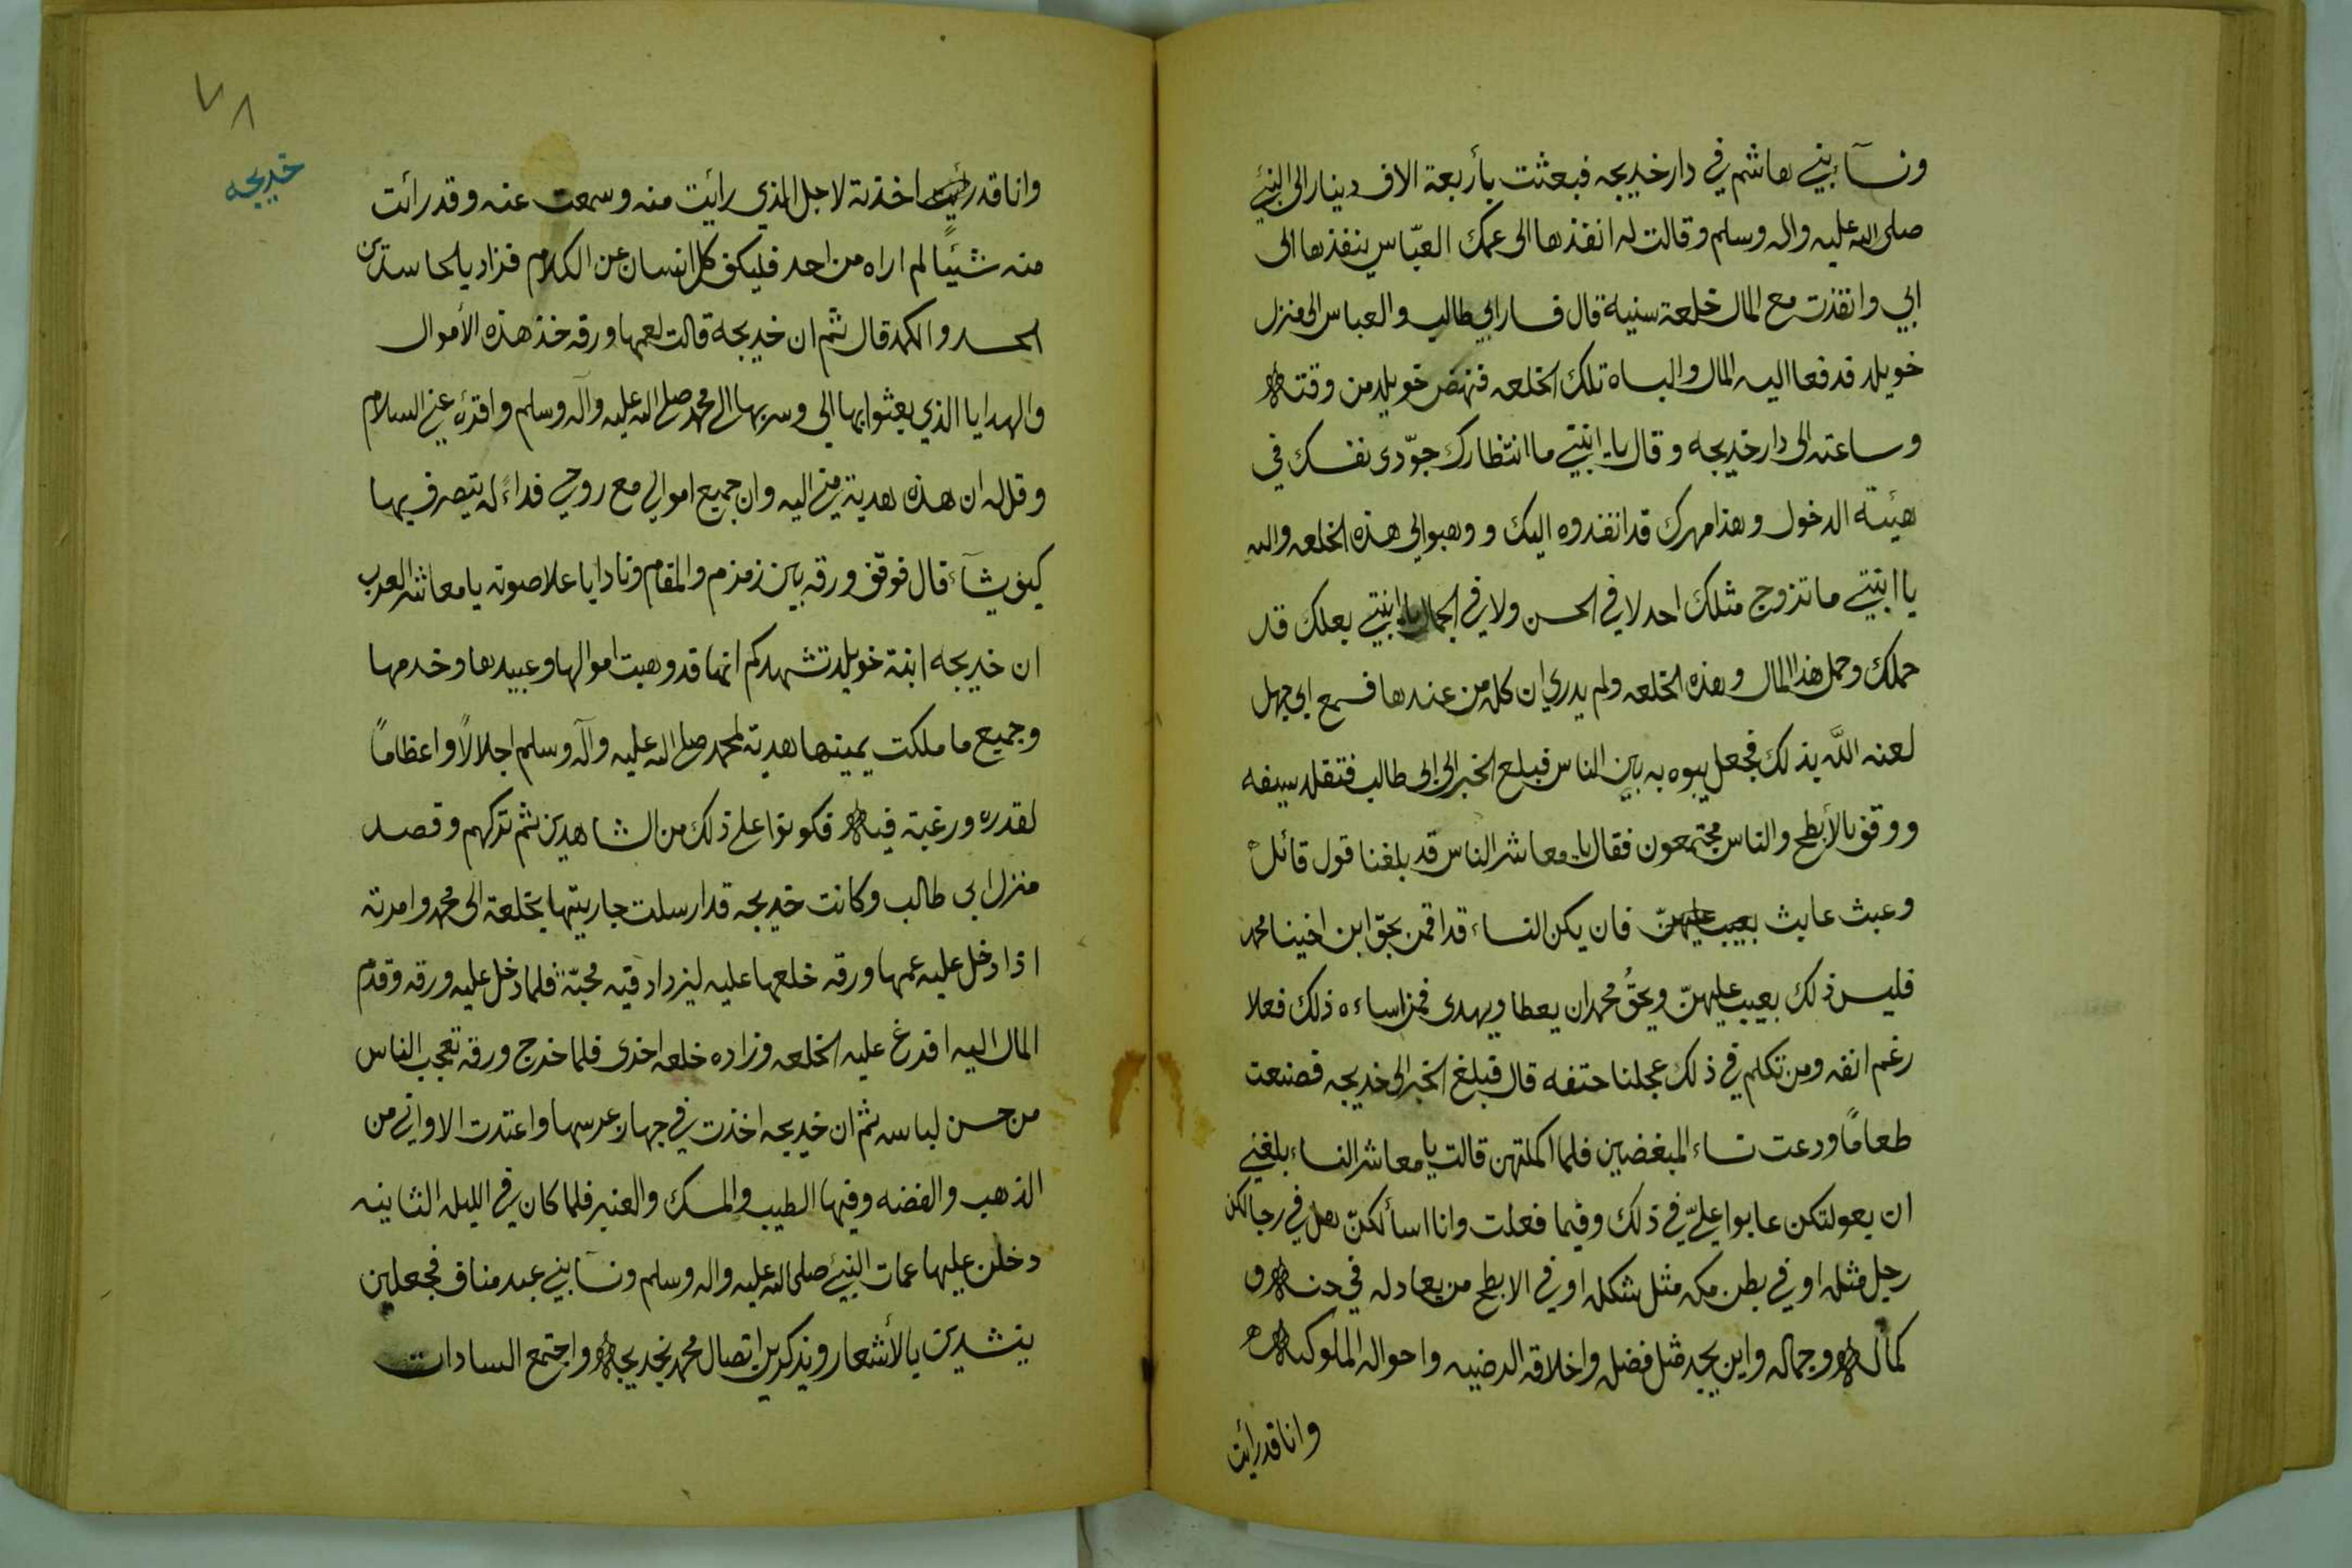 ونسآ بني هاشم في دار خديجه فبعثت بأربعة الاف دينار الى النبي
صلى الله عليه واله وسلم وقالت له انفذها الى عمك العبّاس ينفذها الى
ابي وانفذت مع المال خلعة سنية قال فسار ابي طالب والعباس الى منزل
خويلد قدفعا اليه المال والبساه تلك الخلعه فنهض خويلد من وقته
وساعته الى دار خديجه وقال يا ابنتي ما انتظارك جوّدى نفسك في
هيئة الدخول وهذا مهرك قد انفذوه اليك ووهبوا لي هذه الخلعه والله
يا ابنتي ما تزوج مثلك احد لا في الحسن ولا في الجمال يا ابنتي بعلك قد
حملك وحمل هذا المال وهذه الخلعه ولم يدري ان كله من عندها فسمع ابي جهل
لعنه اللّه بذلك فجعل يبوه به بين الناس فبلع الخبر الى ابي طالب فتقلد سيفه
ووقف بالأبطح والناس مجتمعون فقال يا معاشر الناس قد بلغنا قول قائل
وعبث عابث بعيب عليهنّ فان يكن النساء قد اقمن بحق ابن اخينا محمد
فليس ذلك بعيب عليهنّ ويحقُ محمد ان يعطا ويهدى فمن اساءه ذلك فعلا
رغم انفه ومن تكلم في ذلك عجلنا حتفه قال فبلغ الخبر الى خديجه فصنعت
طعامًا ودعت نساء المبغضين فلما اكملتهن قالت يا معاشر النساء بلغني
ان بعولتكن عابوا عليّ في ذلك وفيما فعلت وانا اسألكنّ هل في رجالكن
رجل مثله او في بطن مكه مثل شكله او في الابطح من يعادله في حسنه و
كماله وجماله واين يجد مثل فضله واخلاقه الرضيه واحواله الملوكيه
وانا قد رائت
٧٨
خديجه
وانا قد رائيت اخذته لاجل الذي رائيت منه وسمعت عنه وقد رائت
منه شيئًا لم اراه من احد فليكف كل انسان عن الكلام فزاد بالحاسدين
الحسد والكمد قال ثم ان خديجة قالت لعمها ورقه خذ هذه الأموال
والهدايا الذي بعثوا بها الي وسر بها الى محمد صلى الله عليه وآله وسلم واقرئه عني السلام
وقل له ان هذه هدية مني اليه وان جميع اموالي مع روحي فداءً له يتصرف بها
كيف يشآء قال فوقف ورقه بين زمزم والمقام ونادا باعلا صوته يا معاشر العرب
ان خديجه ابنة خويلد تشهدكم انها قد وهبت اموالها وعبيدها وخدمها
وجميع ما ملكت يمينها هدية لمحمد صلى الله عليه وآله وسلم اجلالًا واعظامًا
لقدره ورغبة فيه فكونوا على ذلك من الشاهدين ثم تركهم وقصد
منزل ابي طالب وكانت خديجه قد ارسلت جاريتها بخلعة الى محمد وامرته
اذا دخل عليه عمها ورقه خلعها عليه ليزداد فيه محبّة فلما دخل عليه ورقه وقدم
المال اليه افرغ عليه الخلعه وزاده خلعه اخرى فلما خرج ورقه تعجب الناس
من حسن لباسه ثم ان خديجه اخذت في جهاز عرسها واعتدت الاواني من
الذهب والفضه وفيها الطيب والمسك والعنبر فلما كان في الليله الثانيه
دخلن عليها عمات النبي صلى الله عليه واله وسلم ونسآ بني عبد مناف فجعلين
ينشدين بالأشعار ويذكرين اتصال محمد بخديجه واجتمع السادات